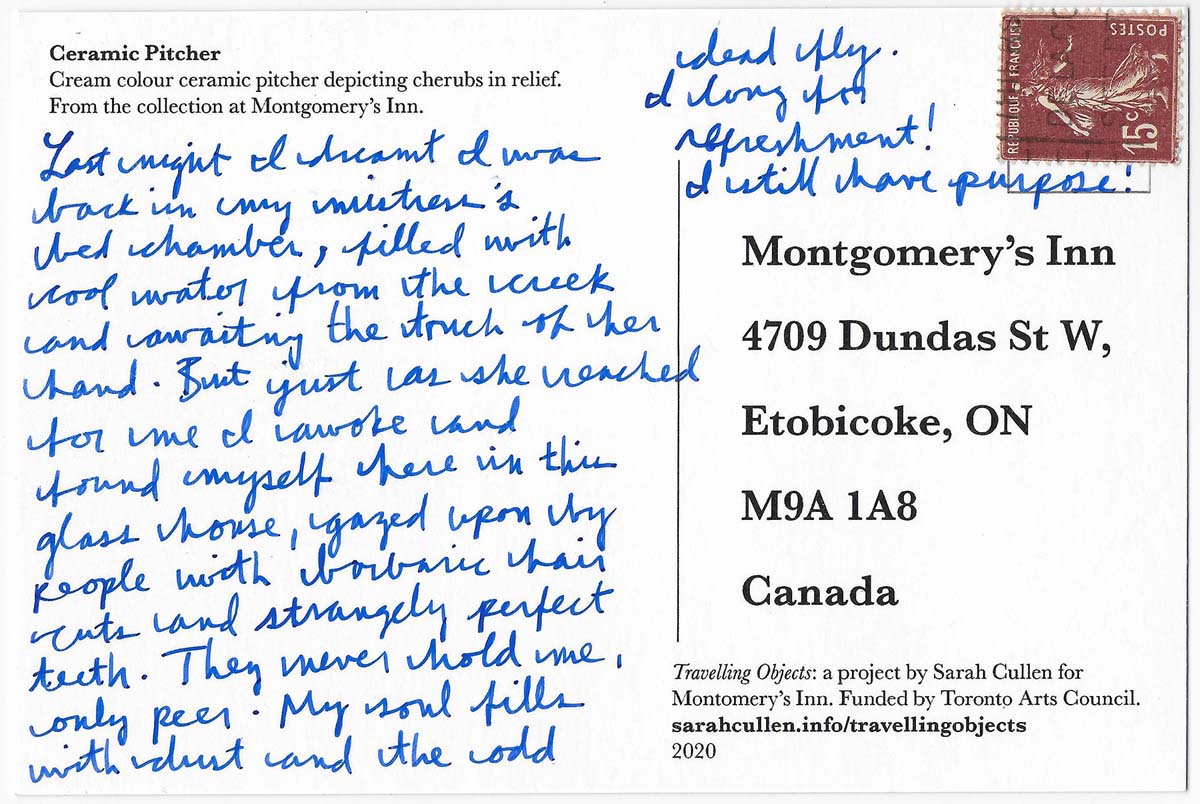 Ceramic Pitcher
Cream colour ceramic pitcher depicting cherubs in relief.
From the collection at Montgomery's Inn.
Last night I dreamt I was
back in my mistress's
bed chamber, filled with
cool water from the creek
and awaiting the touch of her
hand. But just as she reached
for me I awoke and
found myself here in this
glass house, gazed upon by
people with barbaric hair
cuts and strangely perfect
teeth. They never hold me,
only peer. My soul fills
with dust and the odd
dead fly.
I long for
refreshment!
I still have purpose!
REPUBLIQUE FRANÇAISE
POSTES
15 c
Montgomery's Inn
4709 Dundas St W,
Etobicoke, ON
M9A 1A8
Canada
Travelling Objects: a project by Sarah Cullen for
Montomery's Inn. Funded by Toronto Arts Council.
sarahcullen.info/travellingobjects
2020